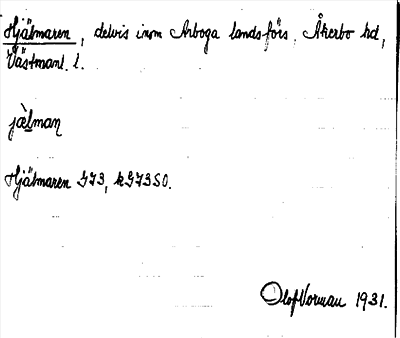 Hjälmaren, delvis inom Arboga landsförs. Åkerbo hd,
Västmanl. l.
jæ̀lman
Hjälmaren GJ3, kGJ3SO.
Olof Vorman 1931.